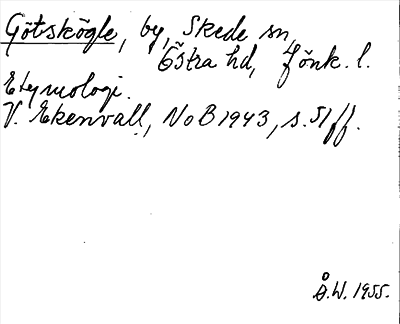 Götskögle, by, Skede sn,
Östra hd, Jönk. l.
Etymologi.
V. Ekenvall, NoB 1943, s. 51 ff.
Å.W. 1955.